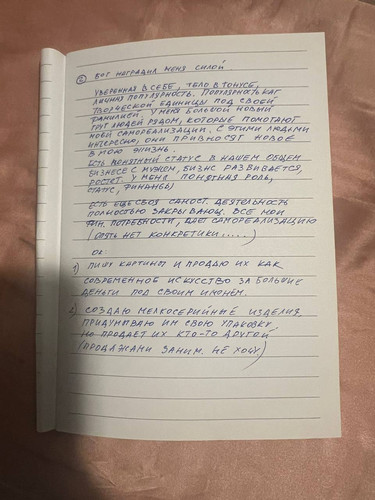 ② БОГ НАГРАДИЛ МЕНЯ СИЛОЙ
УВЕРЕННАЯ В СЕБЕ, ТЕЛО В ТОНУСЕ,
ЛИЧНАЯ ПОПУЛЯРНОСТЬ. ПОПУЛЯРНОСТЬ КАК
ТВОРЧЕСКОЙ ЕДИНИЦЫ ПОД СВОЕЙ
ФАМИЛИЕЙ. У МЕНЯ БОЛЬШОЙ НОВЫЙ
КРУГ ЛЮДЕЙ РЯДОМ, КОТОРЫЕ ПОМОГАЮТ
МОЕЙ САМОРЕАЛИЗАЦИИ. С ЭТИМИ ЛЮДЬМИ
ИНТЕРЕСНО, ОНИ ПРИВНОСЯТ НОВОЕ
В МОЮ ЖИЗНЬ.
ЕСТЬ ПОНЯТНЫЙ СТАТУС В НАШЕМ ОБЩЕМ
БИЗНЕСЕ С МУЖЕМ, БИЗНС РАЗВИВАЕТСЯ,
РОСТЕТ. У МЕНЯ ПОНЯТНАЯ РОЛЬ,
СТАТУС, ФИНАНСЫ
ЕСТЬ ЕЩЕ СВОЯ САМОСТ. ДЕЯТЕЛЬНОСТЬ
ПОЛНОСТЬЮ ЗАКРЫВАЮЩ. ВСЕ МОИ
ФИН. ПОТРЕБНОСТИ, ДАЕТ САМОРЕАЛИЗАЦИЮ
(ОПЯТЬ НЕТ КОНКРЕТИКИ.....)
ОК
1) ПИШУ КАРТИНЫ И ПРОДАЮ ИХ КАК
СОВРЕМЕННОЕ ИСКУССТВО ЗА БОЛЬШИЕ
ДЕНЬГИ ПОД СВОИМ ИМЕНЕМ.
2) СОЗДАЮ МЕЛКОСЕРИЙНЫЕ ИЗДЕЛИЯ
ПРИДУМЫВАЮ ИМ СВОЮ УПАКОВКУ
НО ПРОДАЕТ ИХ КТО-ТО ДРУГОЙ
(ПРОДАЖАМИ ЗАНИМ. НЕ ХОЧУ)